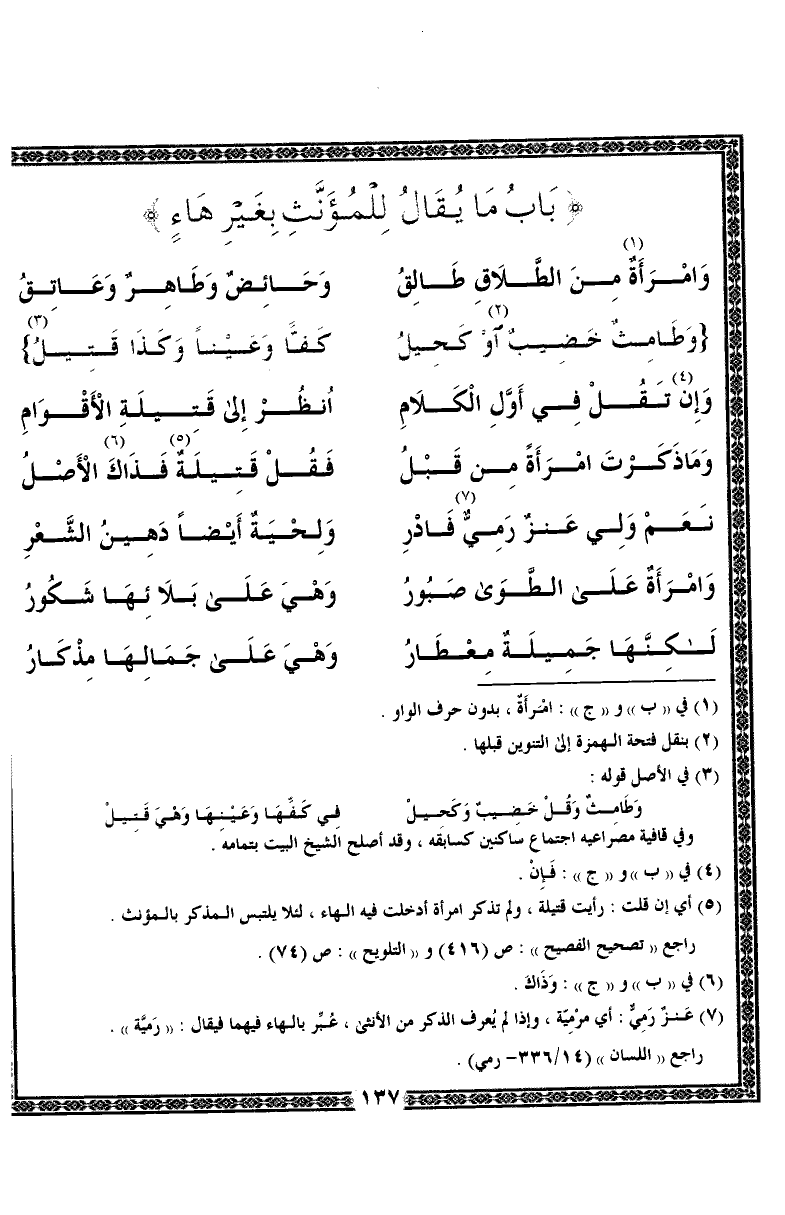 ﴿ بَابُ مَا يُقَالُ لِلْمُؤَنَّثِ بِغَيْرِ هَاءٍ ﴾
وَامْرَأَةٌ (١) مِنَ الطَّلَاقِ طَالِقُ وَحَائِضٌ وَطَاهِرٌ وَعَاتِقُ
{وَطَامِثٌ خَضِيبٌ (٢) اَوْ كَحِيلُ كَفًّا وَعَيْناً وَكَذَا قَتِيلُ} (٣)
وَإِنْ (٤) تَقُلْ فِي أَوَّلِ الْكَلَامِ اُنظُرْ إِلىٰ قَتِيلَةِ الْأَقْوَامِ
وَمَاذَكَرْتَ امْرَأَةً مِن قَبْلُ فَقُلْ قَتِيلَةٌ (٥) فَذَاكَ (٦) الْأَصْلُ
نَعَمْ وَلِي عَنزٌ رَمِيٌّ (٧) فَادْرِ وَلِحْيَةٌ أَيْضاً دَهِينُ الشَّعْرِ
وَامْرَأَةٌ عَلَىٰ الطَّوَىٰ صَبُورُ وَهْيَ عَلَىٰ بَلَائِهَا شَكُورُ
لَـٰكِنَّهَا جَمِيلَةٌ مِعْطَارُ وَهْيَ عَلَىٰ جَمَالِهَا مِذْكَارُ
(١) في «ب» و «ج» : امْرَأَةٌ ، بدون حرف الواو .
(٢) بنقل فتحة الهمزة إلىٰ التنوين قبلها .
(٣) في الأصل قوله :
وَطَامِثٌ وَقُلْ خَضِيبٌ وَكَحِيلْ فِي كَفِّهَا وَعَيْنِهَا وَهْيَ قَتِيلْ
وفي قافية مصراعيه اجتماع ساكنين كسابقه ، وقد أصلح الشيخ البيت بتمامه .
(٤) في «ب» و «ج» : فَإِنْ .
(٥) أي إن قلت : رأيت قتيلة ، ولم تذكر امرأة أدخلت فيه الهاء ، لئلا يلتبس المذكر بالمؤنث .
راجع «تصحيح الفصيح» : ص (٤١٦) و «التلويح» : ص (٧٤) .
(٦) في «ب» و «ج» : وَذَاكَ .
(٧) عَنزٌ رَمِيٌّ : أي مرْمِيّة ، وإذا لم يُعرف الذكر من الأنثىٰ ، عُبِّر بالهاء فيهما فيقال : «رَمِيَّة» .
راجع «اللسان» (٣٣٦/١٤- رمي) .
١٣٧